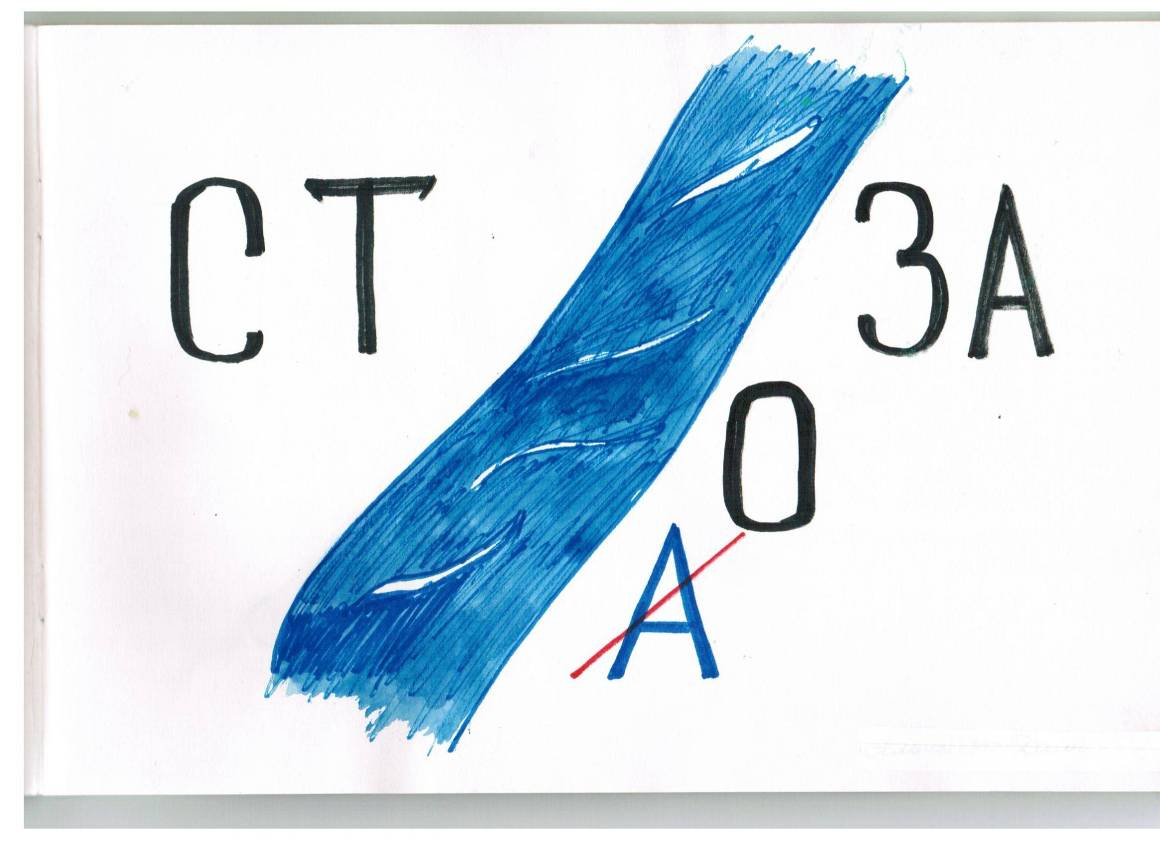 СТ ЗА
О
А